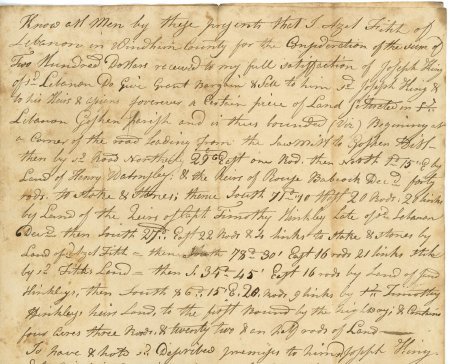 Know all Men by these presents that I Azel Fitch of
Lebanon in Windham County for the Consideration of the sum of
Two Hundred Dollars received to my full satisfaction of Joseph
of sd Lebanon Do Give Grant Bargain & Sell to him sd Joseph &
to his Heirs & assigns forever a Certain piece of Land situated in sd
Lebanon Goshen parish and is thus bounded viz Beginning at
a Corner of the road leading from the Sawmill to Goshen
then by sd Road Northerly 29° East one Rod, then North 15° E by
Land of Henry & the Heirs of Rouse Babcock Decd forty
rods to Stake & Stones; thence South West 20 Rods 20 links
by Land of the Heirs of Capt Timothy Hinkley Late of sd Lebanon
Decd then South East 22 Rods & links to Stake & Stones by
Land of Azel Fitch = then South 78d 30' East 16 rods 21 links Stake
by sd Fitch Land = then S. 34d 45' East 16 rods by Land of
Hinkleys, then South 86d 15' E. 20 rods 9 links by sd Timothy
Hinkleys heirs Land to the first bound by the highway, & Contains
four Acres three Rods & twenty two & an half rods of Land
To have & hold sd Described premises to him Joseph